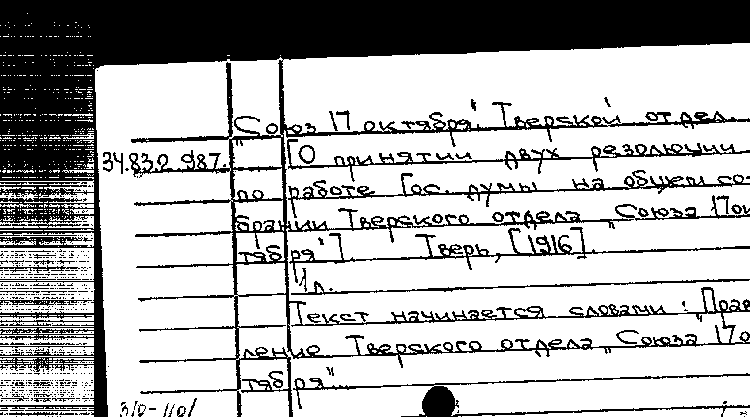 "Союз 17 октября". Тверской отдел.
34.83.2.987. [О принятии двух резолюции
по работе Гос. думы на общем со-
брании Тверского отдела „Союза 17 ок
тября"]. Тверь, [1916].
1 л.
Текст начинается словами: „Прав
ление Тверского отдела „Союза 17 о
тября"...